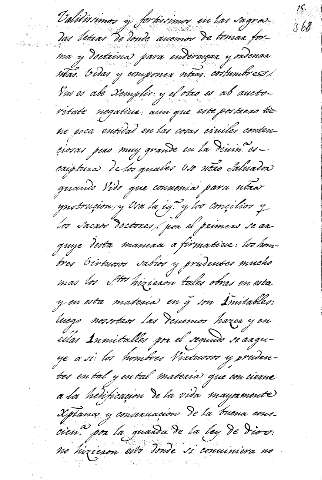 15
368
Validissimos y fortissimos en las sagra-
das letras de donde avemos de tomar for-
ma y doctrina para enderaçar y ordenar
ntras. Vidas y componer ntras. costumbres.
Uno es abs Xemplo: y el otro es ab aucto-
ritate negative, aun que este postrero tie-
ne poca entidad en las cosas civiles conten-
ciosas pero muy grande en la divina es-
criptura de los quales Uso ntro Salvador
quando Vido que convenia para ntra
ynstrucion, y Usa la igª. y los concilios y
los sacros doctores; por el primero se ar-
guye desta manera afirmative: los hom-
bres Virtuosos sabios y prudentes mucho
mas los Stos hizieron tales obras en esta
y en esta materia en q son imitables:
luego nosotros las devemos hazer y en
ellas imitalles por el segundo se argu-
ye asi los hombres Virtuosos y pruden-
tes en tal y en tal materia que concierne
a la hedificacion de la vida mayormente
Xptiana y conservacion de la buena cons-
ciena. por la guarda de la ley de dios
no hizieron esto donde si conviniera no